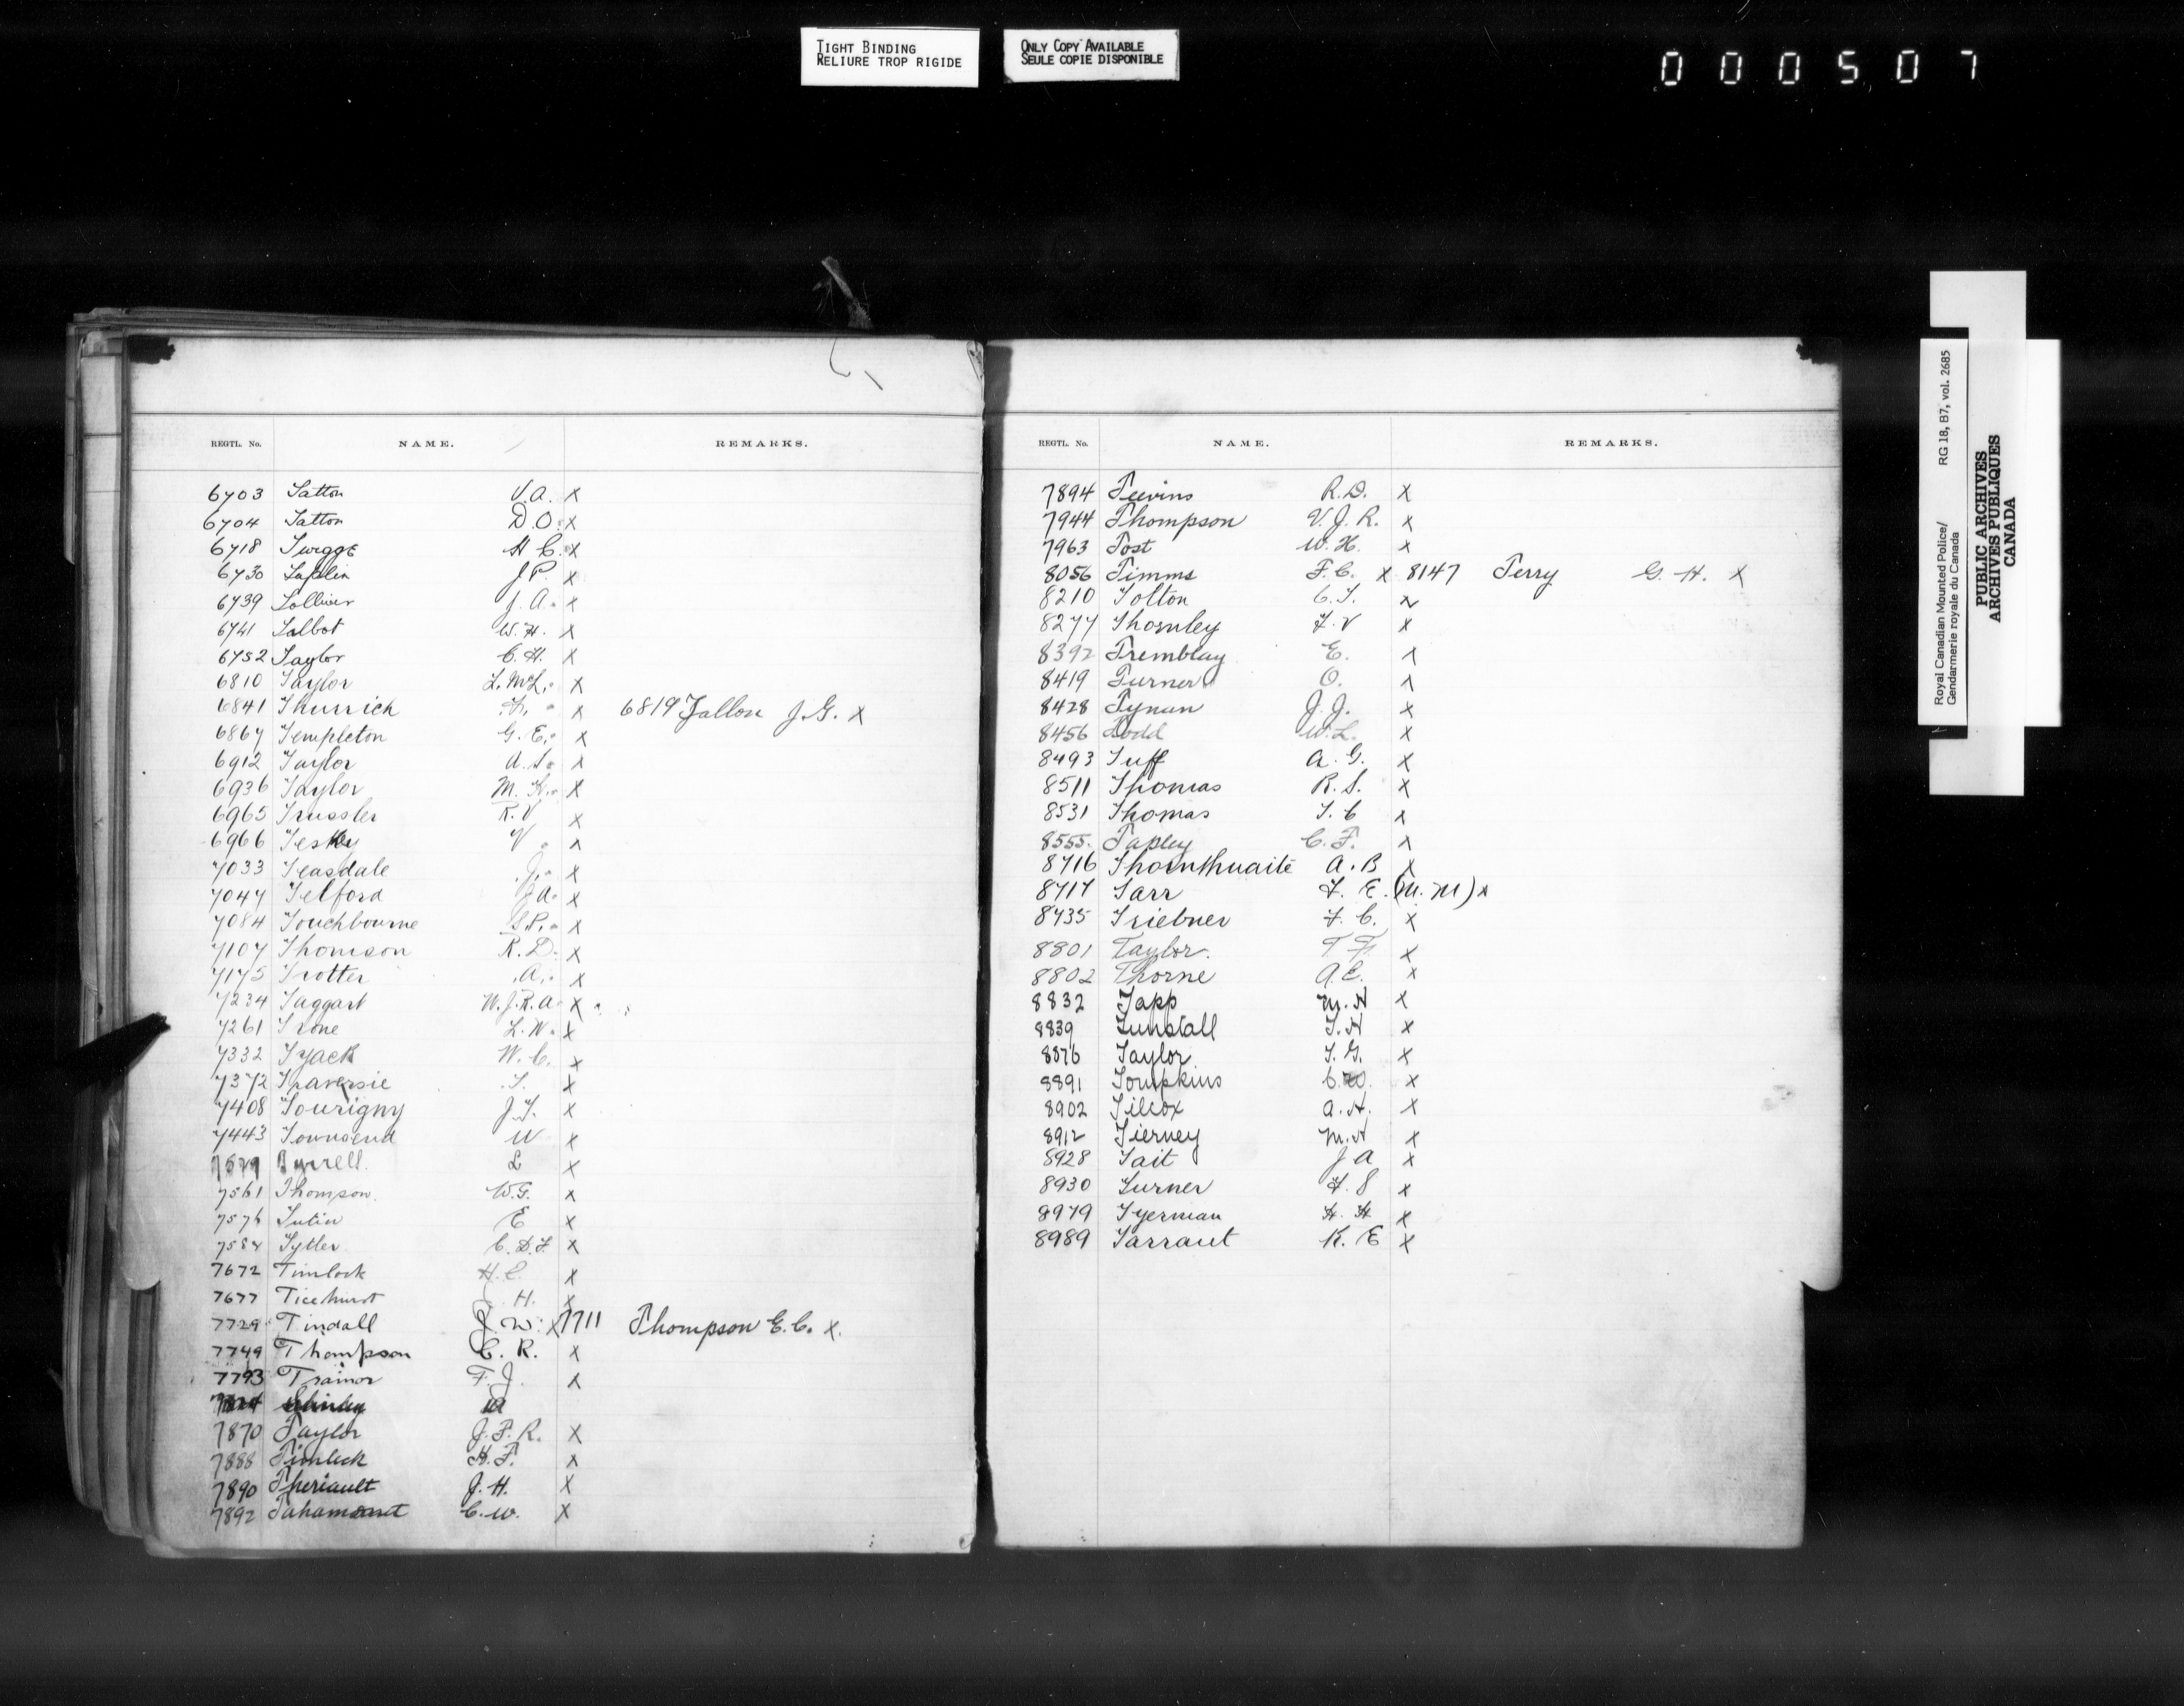 TIGHT BINDING
RELIURE TROP RIGIDE
ONLY COPY AVAILABLE
SEULE COPIE DISPONIBLE
000507
REGTL. No. NAME. REMARKS.
6703 Tatton V.A. x
6704 Tatton D.O. x
6718 Twigge H C. x
6730 Taplin J.P. x
6739 Tolliver J.A. x
6741 Talbot W.H. x
6752 Taylor C.H. x
6810 Taylor L.McL. x
6841 Thurrick x 6819 Tallon J.G. x
6867 Templeton G.E. x
6912 Taylor A.S. x
6936 Taylor M.K. x
6965 Trussler R.V x
6966 Tesky V x
7033 Teasdale J. x
7047 Telford J A. x
7084 Touchbourne G.P. x
7107 Thomson R.D. x
7175 Trotter A. x
7234 Taggart W.J.R.A. x
7261 Trone L.W. x
7332 Tyack W.C. x
7372 Traversie T. x
7408 Tourigny J.T. x
7443 Townsend W x
Tyrrell. L x
7561 Thomson. W.G. x
7576 Tutin E x
7584 Tytler C.D.F x
7672 Timlock H.C. x
7677 Ticehurst H. x
7729 Tindall J.W. x 7711 Thompson E.C. x.
7749 Thompson C.R. x
7793 Trainor F.J. x
7870 Taylor J.F.R. x
7888 Timleck H.F. x
7890 Theriault J.H. x
7892 Tahamont C.W. x
REGTL. No. NAME. REMARKS.
7894 Teevins R.D. x
7944 Thompson V.J.R. x
7963 Tost W.H. x
8056 Timms F.C. x 8147 Terry G.H. x
8210 Tolton C.T. x
8277 Thornley F.V x
8392 Tremblay E. x
8419 Turner O. x
8428 Tynan J.J. x
8456 Todd W.L. x
8493 Tuff A.G. x
8511 Thomas R.S. x
8531 Thomas T.C x
8555. Tapley C.F. x
8716 Thornthwaite A.B x
8717 Tarr F.E. (M.M) x
8735 Triebner F.C. x
8801 Taylor. T F. x
8802 Thorne A.E. x
8832 Tapp M.H x
8839 Tunstall T.H x
8876 Taylor T.G. x
8891 Tompkins C.W. x
8902 Tilcox A.H. x
8912 Tierney M.H x
8928 Tait J A x
8930 Turner F.S x
8979 Tyerman H.H x
8989 Tarrant K.E x
Royal Canadian Mounted Police/ RG 18, B7, vol. 2685
Gendarmerie royale du Canada
PUBLIC ARCHIVES
ARCHIVES PUBLIQUES
CANADA